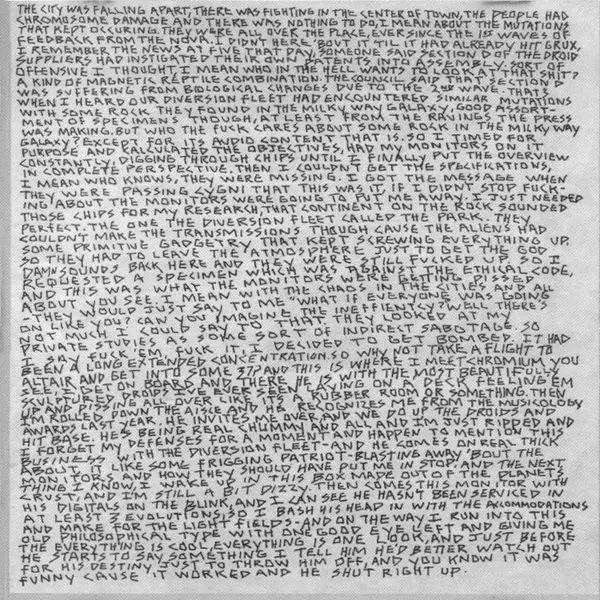 THE CITY WAS FALLING APART, THERE WAS FIGHTING IN THE CENTER OF TOWN, THE PEOPLE HAD
CHROMOSOME DAMAGE AND THERE WAS NOTHING TO DO, I MEAN ABOUT THE MUTATIONS
THAT KEPT OCCURING. THEY WERE ALL OVER THE PLACE, EVER SINCE THE 1ST WAVES OF
FEEDBACK FROM THE NOVA. I DIDN'T HERE 'BOUT IT 'TIL IT HAD ALREADY HIT GRUX,
I REMEMBER THE NEWS AT FIVE THAT DAY, SOMEONE SAID SECTION D OF THE DROID
SUPPLIERS HAD INSTIGATED THEIR OWN PATENTS INTO ASSEMBLY. SORT OF
OFFENSIVE I THOUGHT, I MEAN WHO IN THE HELL WANTS TO LOOK AT THAT SHIT?
A KIND OF MAGNETIC REPTILE COMBINATION. THE COUNCIL SAID THAT SECTION D
WAS SUFFERING FROM BIOLOGICAL CHANGES DUE TO THE 2ND WAVE. THAT'S
WHEN I HEARD OUR DIVERSION FLEET HAD ENCOUNTERED SIMILAR MUTATIONS
WITH SOME ROCK THEY FOUND IN THE MILKY WAY GALAXY, GOOD ASSORT-
MENT OF SPECIMENS THOUGH, AT LEAST FROM THE RAVINGS THE PRESS
WAS MAKING. BUT WHO THE FUCK CARES ABOUT SOME ROCK IN THE MILKY WAY
GALAXY? EXCEPT FOR ITS AVOID CONTENT THAT IS. SO I TIMED FOR
PURPOSE AND CALCULATED THE OBJECTIVES, HAD MY MONITORS ON IT
CONSTANTLY, DIGGING THROUGH CHIPS UNTIL I FINALLY PUT THE OVERVIEW
IN COMPLETE PERSPECTIVE. THEN I COULDN'T GET THE SPECIFICATIONS,
I MEAN WHO KNOWS, THEY WERE MISSING. I GOT THE MESSAGE WHEN
THEY WERE PASSING CYGNI THAT THIS WAS IT, IF I DIDN'T STOP FUCK-
ING ABOUT THE MONITORS WERE GOING TO PUT ME AWAY. I JUST NEEDED
THOSE CHIPS FOR MY RESEARCH, THAT CONTINENT ON THE ROCK SOUNDED
PERFECT. THE ONE THE DIVERSION FLEET CALLED THE PARK. THEY
COULDN'T MAKE THE TRANSMISSIONS THOUGH CAUSE THE ALIENS HAD
SOME PRIMITIVE GADGETRY THAT KEPT SCREWING EVERYTHING UP.
SO THEY HAD TO LEAVE THE ATMOSPHERE JUST TO GET THE GOD
DAMN SOUNDS BACK HERE AND THEY WERE STILL FUCKED UP. SO I
REQUESTED A SPECIMEN WHICH WAS AGAINST THE ETHICAL CODE,
AND THIS WAS WHAT THE MONITORS WERE GETTING PISSED
ABOUT YOU SEE. I MEAN WITH THE CHAOS IN THE CITIES AND ALL
THEY WOULD JUST SAY TO ME "WHAT IF EVERYONE WAS GOING
ON LIKE YOU? CAN YOU IMAGINE THE INEFFIENCY?" WELL THERE'S
NOT MUCH I COULD SAY TO THAT. THEY LOOKED AT MY
PRIVATE STUDIES AS SOME SORT OF INDIRECT SABOTAGE. SO
I SAY FUCK 'EM, FUCK IT. I DECIDED TO GET BOMBED. IT HAD
BEEN A LONG EXTENDED CONCENTRATION. SO WHY NOT TAKE A FLIGHT TO
ALTAIR AND GET INTO SOME 37? AND THIS IS WHERE I MEET CHROMIUM YOU
SEE. I GET ON BOARD AND THERE HE IS WITH THE MOST BEAUTIFULLY
SCULPTURED DROIDS I'VE EVER SEEN, LYING ON A DECK FEELING 'EM
UP AND PISSING ALL OVER LIKE IT'S A RUBBER ROOM OR SOMETHING. THEN
I'M ROLLED DOWN THE AISLE AND HE RECOGNIZES ME FROM THE MUSICOLOGY
AWARDS LAST YEAR. HE INVITES ME OVER AND WE DO UP THE DROIDS AND
HIT BASE. HE'S BEING REAL CHUMMY AND ALL AND I'M JUST RIPPED AND
I FORGET MY DEFENSES FOR A MOMENT AND HAPPEN TO MENTION THIS
BUSINESS WITH THE DIVERSION FLEET-AND HE COMES ON REAL THICK
ABOUT IT LIKE SOME FRIGGING PATRIOT-BLASTING AWAY 'BOUT THE
MONITORS AND HOW THEY SHOULD HAVE PUT ME IN STOP, AND THE NEXT
THING I KNOW, I WAKE UP IN THIS BOX MADE OUT OF THE PLANET'S
CRUST, AND I'M STILL A BIT DIZZY. THEN COMES THIS MONITOR WITH
HIS DIGITALS ON THE BLINK, AND I CAN SEE HE HASN'T BEEN SERVICED IN
AT LEAST 3 EVOLUTIONS, SO I BASH HIS HEAD IN WITH THE ACCOMMODATIONS
AND MAKE FOR THE LIGHT FIELDS-AND ON THE WAY I RUN INTO THIS
OLD PHILOSOPHICAL TYPE WITH ONE GOOD EYE LEFT AND GIVING ME
THE EVERYTHING IS COOL, EVERYTHING IS ONE LOOK, AND JUST BEFORE
HE STARTS TO SAY SOMETHING I TELL HIM HE'D BETTER WATCH OUT
FOR HIS DESTINY, JUST TO THROW HIM OFF, AND YOU KNOW IT WAS
FUNNY CAUSE IT WORKED AND HE SHUT RIGHT UP.